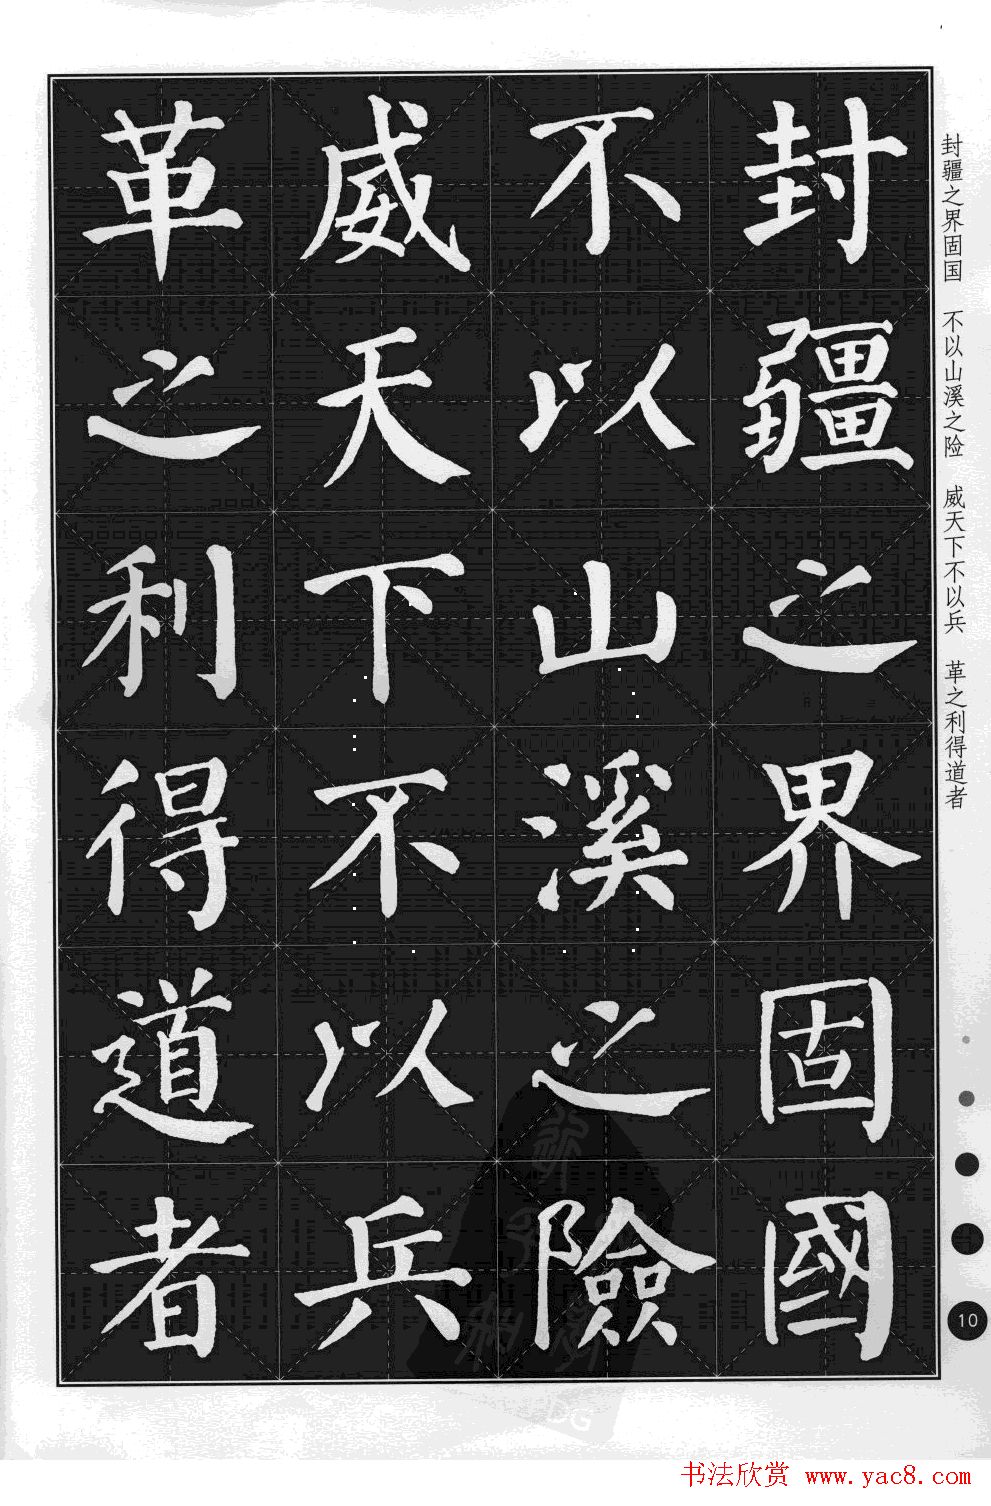 封疆之界固國
不以山溪之險
威天下不以兵
革之利得道者
封疆之界固国 不以山溪之险 威天下不以兵 革之利得道者
10
书法欣赏 www.yac8.com